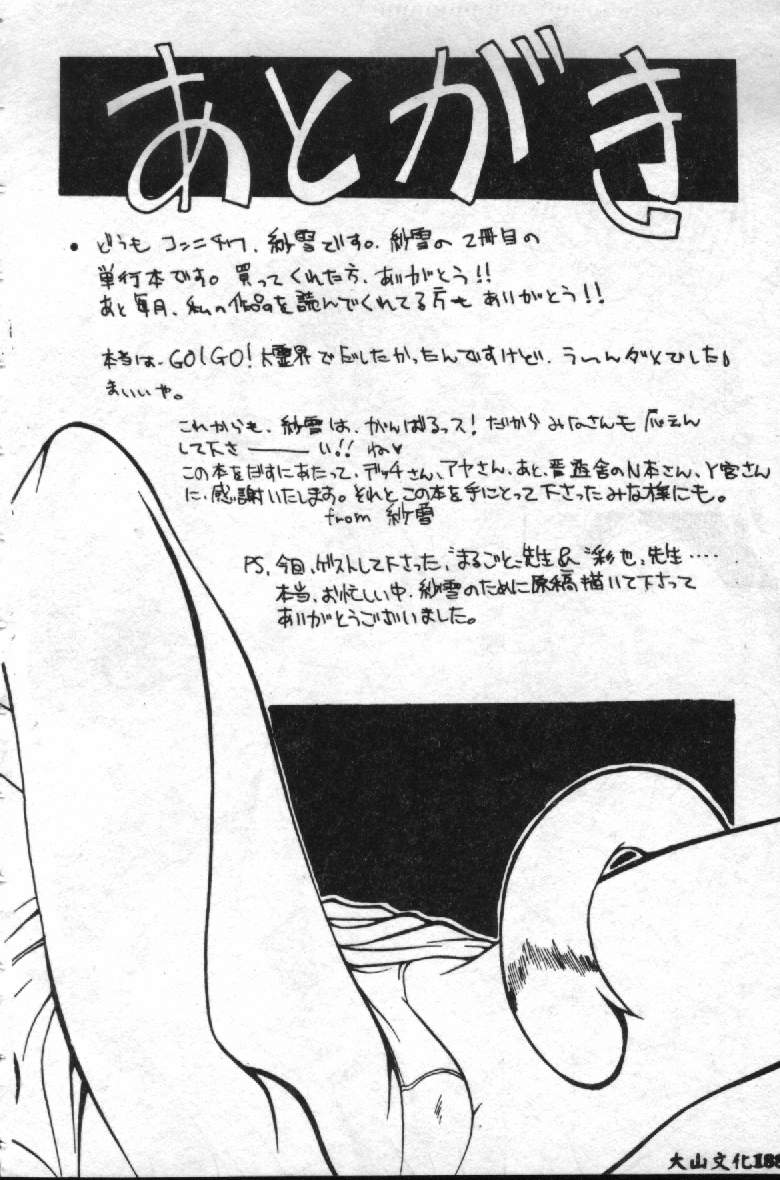 あとがき
• どうも コンニチワ、紗雪です。紗雪の2冊目の
単行本です。買ってくれた方、ありがとう!!
あと毎月、私の作品を読んでくれてる方も ありがとう!!
本当は、GO!GO!大霊界でだしたかったんですけど、う〜んダメでした。
まぁいいや。
これからも、紗雪は、がんばるっス!だから みなさんも 応えん
して下さ———い!! ね♥
この本をだすにあたって、デッチさん、アヤさん、あと、晋遊舎のN本さん、Y宮さん
に、感謝いたします。それと この本を手にとって下さったみな様にも。
from 紗雪
PS. 今回、ゲストして下さった、"まるごと"先生&"彩也"先生‥‥
本当、お忙しい中、紗雪のために原稿描いて下さって
ありがとうございました。
大山文化